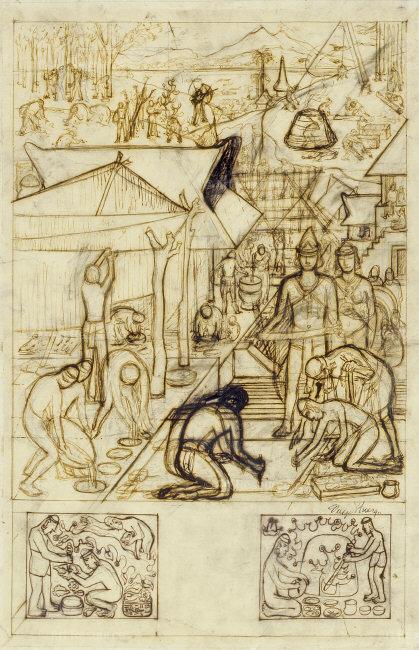 Diego Rivera